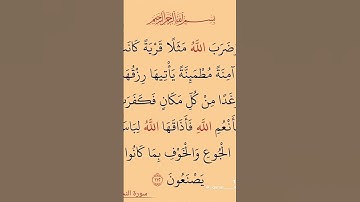 بِسْمِ اللَّهِ الرَّحْمَٰنِ الرَّحِيمِ
ضَرَبَ اللَّهُ مَثَلًا قَرْيَةً كَانَت
آمِنَةً مُطْمَئِنَّةً يَأْتِيهَا رِزْقُهَا
غَدًا مِنْ كُلِّ مَكَانٍ فَكَفَرَت
أَنْعُمِ اللَّهِ فَأَذَاقَهَا اللَّهُ لِبَاسَ
الْجُوعِ وَالْخَوْفِ بِمَا كَانُوا
يَصْنَعُونَ ١١٢
سورة